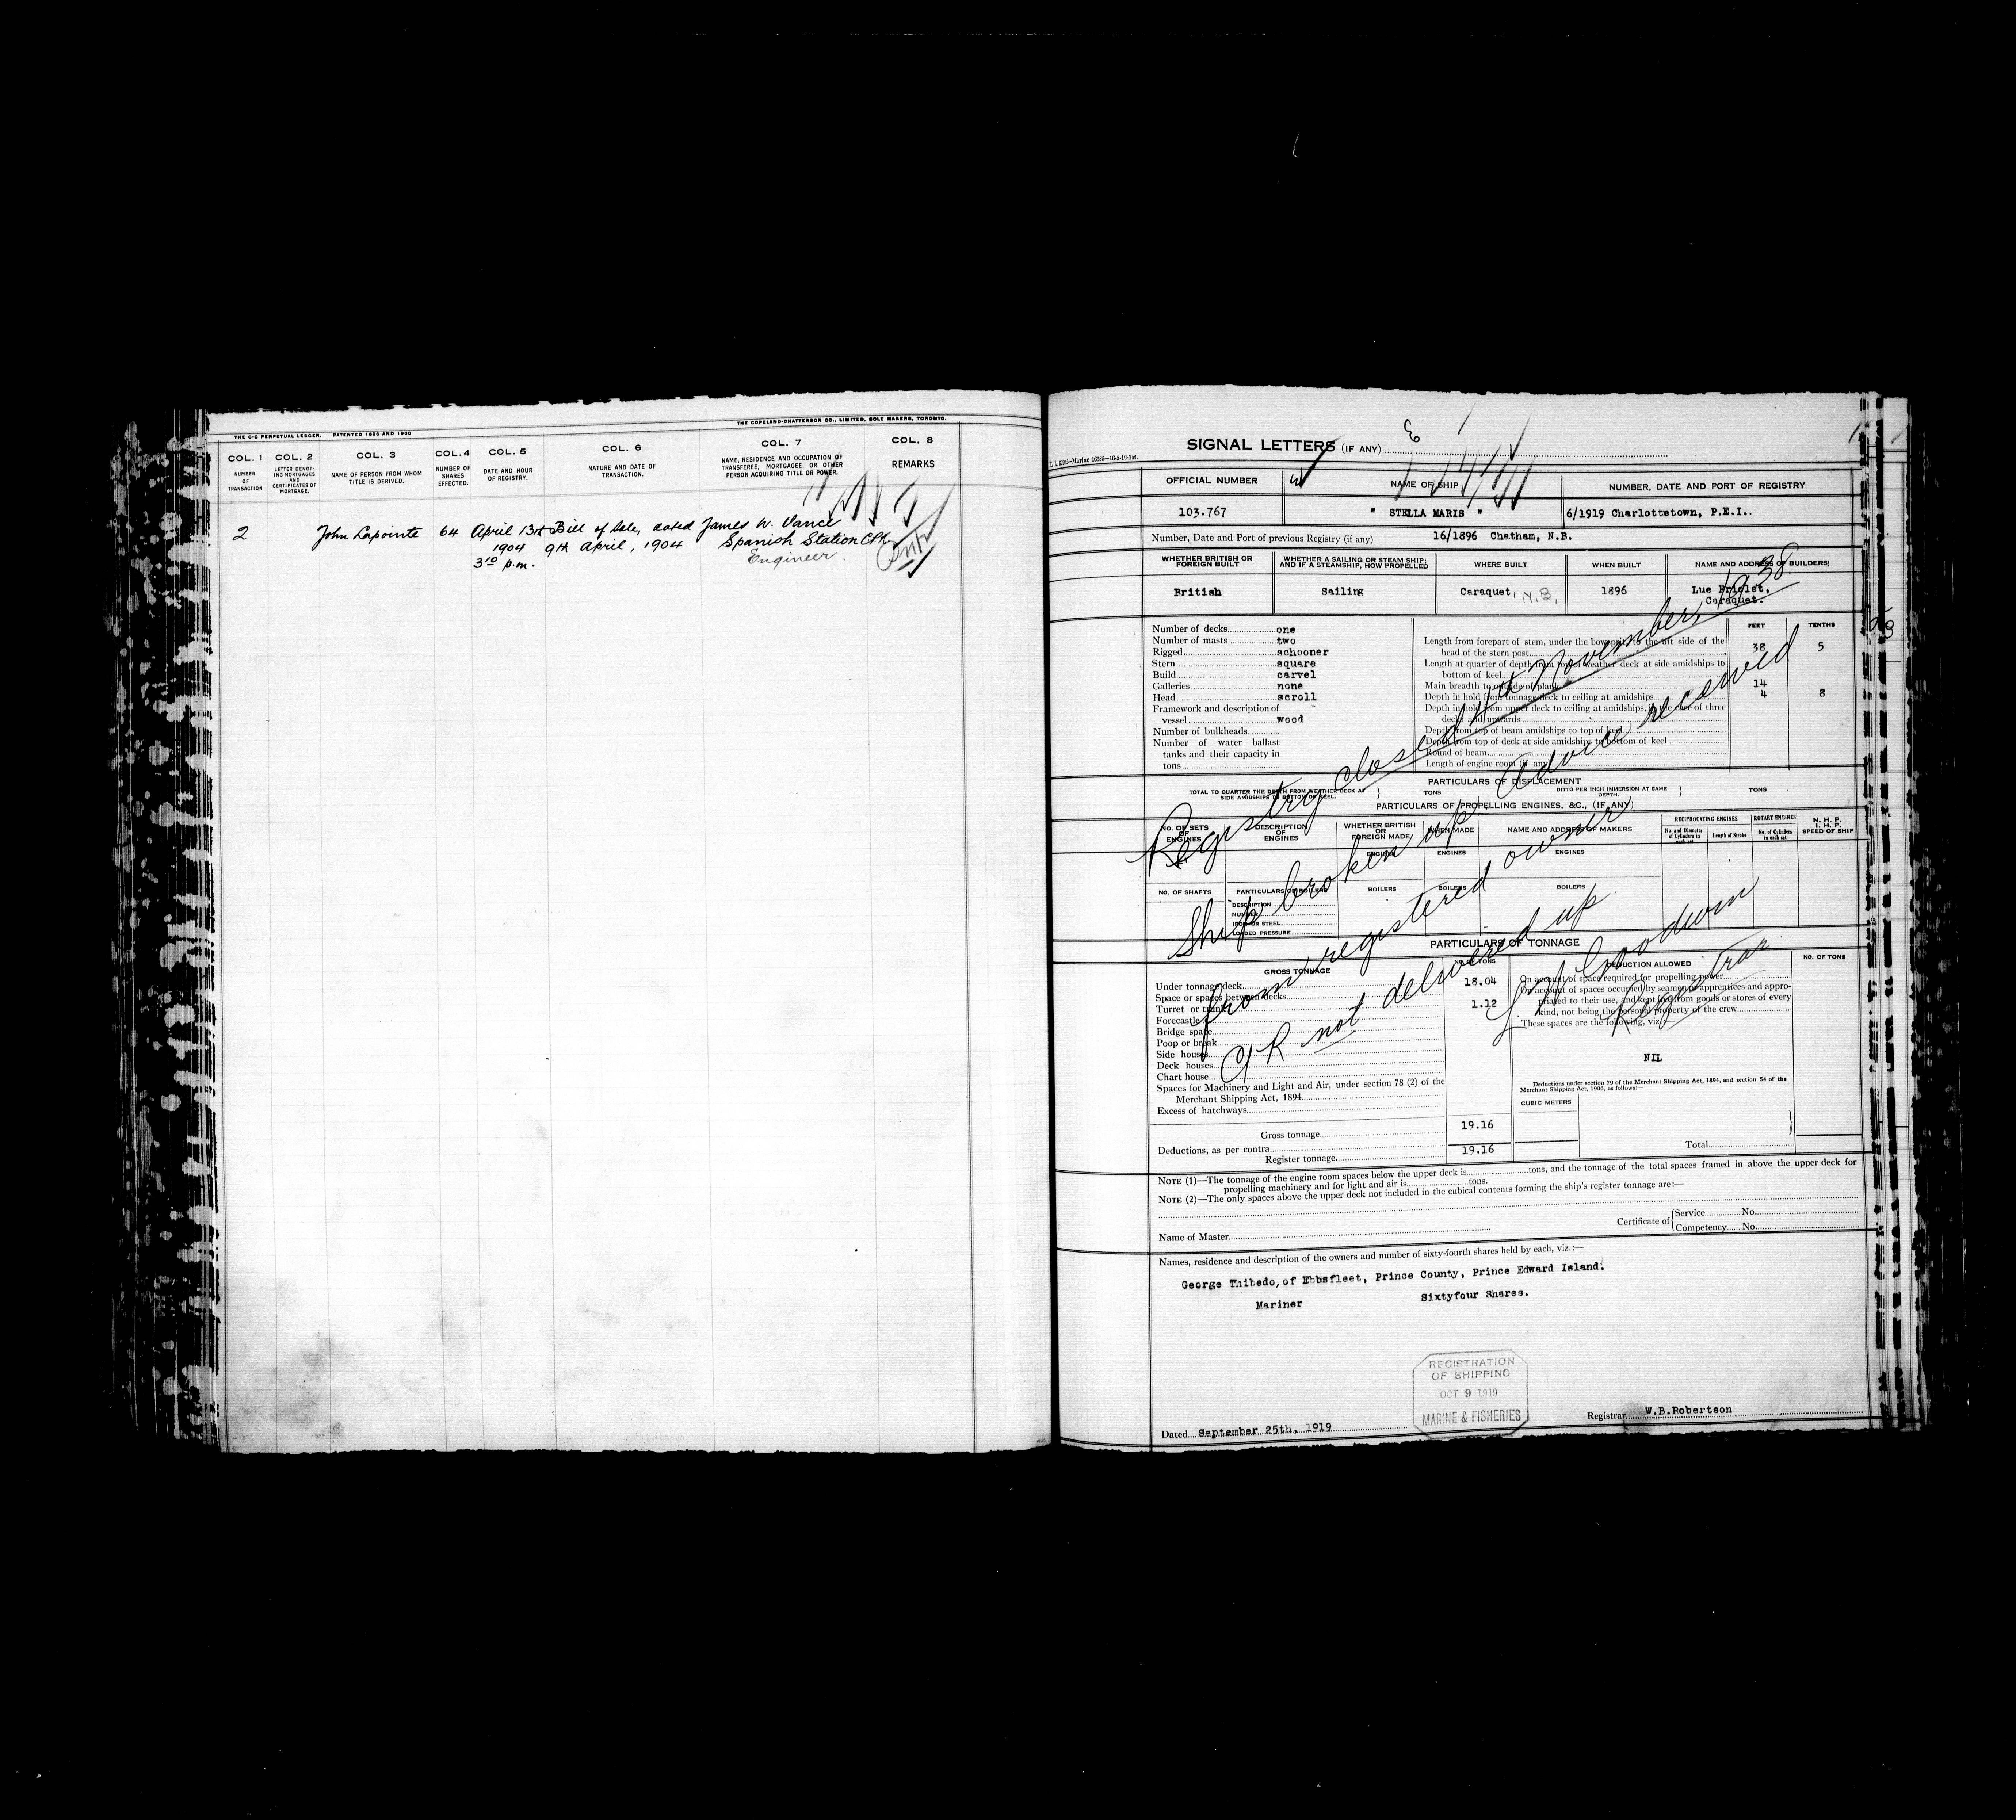 THE C-C PERPETUAL LEDGER. PATENTED 1898 AND 1900
THE COPELAND-CHATTERSON CO., LIMITED, SOLE MAKERS, TORONTO.
COL. 1 COL. 2 COL. 3 COL. 4 COL. 5 COL. 6 COL. 7 COL. 8
NUMBER OF TRANSACTION
LETTER DENOTING MORTGAGES AND CERTIFICATES OF MORTGAGE.
NAME OF PERSON FROM WHOM TITLE IS DERIVED.
NUMBER OF SHARES EFFECTED.
DATE AND HOUR OF REGISTRY.
NATURE AND DATE OF TRANSACTION.
NAME, RESIDENCE AND OCCUPATION OF TRANSFEREE, MORTGAGEE, OR OTHER PERSON ACQUIRING TITLE OR POWER.
REMARKS
2 John Lapointe 64 April 13th Bill of Sale, dated James W. Vance
1904 9th April, 1904 Spanish Station C.P.R.
3 10 p.m. Engineer.
SIGNAL LETTERS (IF ANY)
OFFICIAL NUMBER NAME OF SHIP NUMBER, DATE AND PORT OF REGISTRY
103.767 " STELLA MARIS " 6/1919 Charlottetown, P.E.I..
Number, Date and Port of previous Registry (if any) 16/1896 Chatham, N.B.
WHETHER BRITISH OR FOREIGN BUILT
WHETHER A SAILING OR STEAM SHIP; AND IF A STEAMSHIP, HOW PROPELLED
WHERE BUILT
WHEN BUILT
NAME AND ADDRESS OF BUILDERS
British Sailing Caraquet, N.B. 1896 Lue Friolet,
Caraquet.
Number of decks one
Number of masts two
Rigged schooner
Stern square
Build carvel
Galleries none
Head scroll
Framework and description of
vessel wood
Number of bulkheads
Number of water ballast
tanks and their capacity in
tons
FEET TENTHS
Length from forepart of stem, under the bowsprit, to the aft side of the
head of the stern post 38 5
Length at quarter of depth from top of weather deck at side amidships to
bottom of keel
Main breadth to outside of plank 14
Depth in hold from tonnage deck to ceiling at amidships 4 8
Depth in hold from upper deck to ceiling at amidships, in the case of three
decks and upwards
Depth from top of beam amidships to top of keel
Depth from top of deck at side amidships to bottom of keel
Round of beam
Length of engine room (if any)
Registry closed 4th November, 1938.
Ship broken up. Advice received
from registered owner
CR not delivered up
Goodwin
Registrar
PARTICULARS OF DISPLACEMENT
TOTAL TO QUARTER THE DEPTH FROM WEATHER DECK AT SIDE AMIDSHIPS TO BOTTOM OF KEEL. TONS
DITTO PER INCH IMMERSION AT SAME DEPTH. TONS
PARTICULARS OF PROPELLING ENGINES, &C., (IF ANY)
NO. OF SETS OF ENGINES
DESCRIPTION OF ENGINES
WHETHER BRITISH OR FOREIGN MADE
WHEN MADE
NAME AND ADDRESS OF MAKERS
RECIPROCATING ENGINES
No. and Diameter of Cylinders in each set
Length of Stroke
ROTARY ENGINES
No. of Cylinders in each set
N. H. P.
I. H. P.
SPEED OF SHIP
ENGINES ENGINES ENGINES
NO. OF SHAFTS PARTICULARS OF BOILERS BOILERS BOILERS BOILERS
DESCRIPTION
NUMBER
IRON OR STEEL
LOADED PRESSURE
PARTICULARS OF TONNAGE
GROSS TONNAGE NO. OF TONS
Under tonnage deck 18.04
Space or spaces between decks
Turret or trunk 1.12
Forecastle
Bridge space
Poop or break
Side houses
Deck houses
Chart house
Spaces for Machinery and Light and Air, under section 78 (2) of the
Merchant Shipping Act, 1894
Excess of hatchways
Gross tonnage 19.16
Deductions, as per contra
Register tonnage 19.16
DEDUCTION ALLOWED NO. OF TONS
On account of space required for propelling power
On account of spaces occupied by seamen or apprentices and appro-
priated to their use, and kept free from goods or stores of every
kind, not being the personal property of the crew
These spaces are the following, viz.:
NIL
Deductions under section 79 of the Merchant Shipping Act, 1894, and section 54 of the
Merchant Shipping Act, 1906, as follows:—
CUBIC METERS
Total
NOTE (1)—The tonnage of the engine room spaces below the upper deck is tons, and the tonnage of the total spaces framed in above the upper deck for
propelling machinery and for light and air is tons.
NOTE (2)—The only spaces above the upper deck not included in the cubical contents forming the ship's register tonnage are:—
Name of Master
Certificate of Service No.
Competency No.
Names, residence and description of the owners and number of sixty-fourth shares held by each, viz.:—
George Thibedo, of Ebbsfleet, Prince County, Prince Edward Island.
Mariner Sixtyfour Shares.
REGISTRATION
OF SHIPPING
OCT 9 1919
MARINE & FISHERIES
Dated September 25th, 1919
Registrar W.B.Robertson